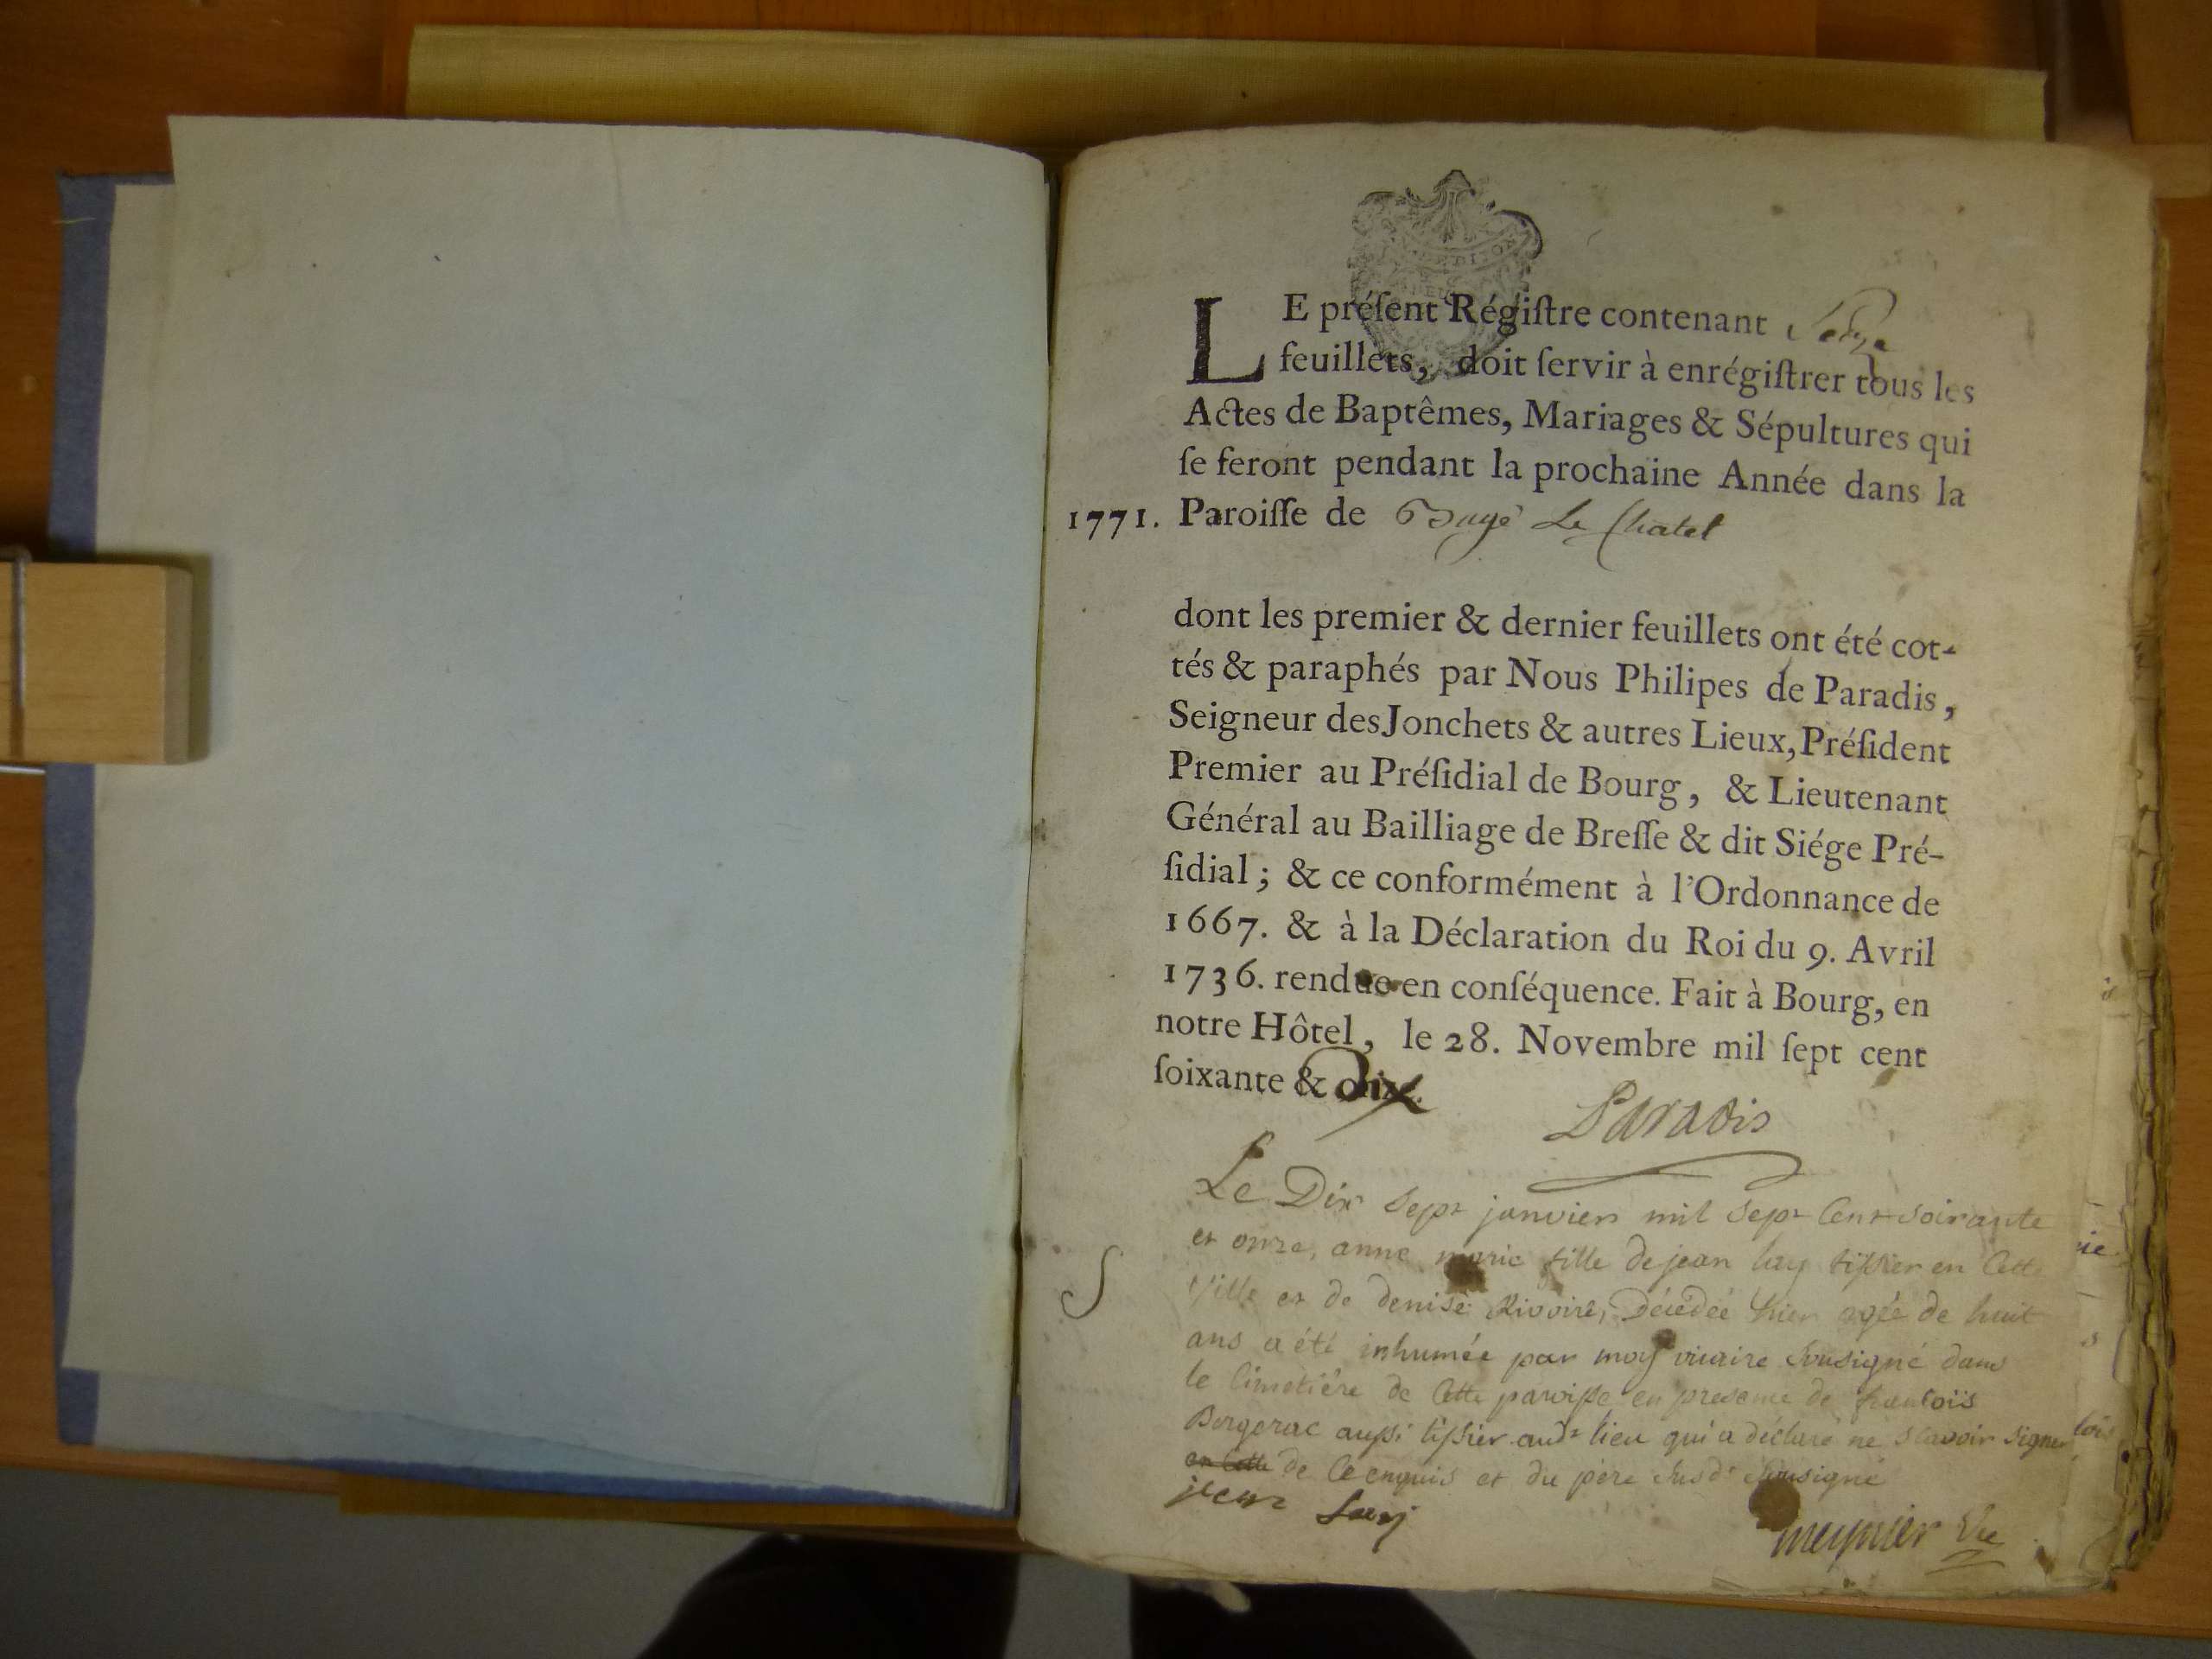 LE préſent Régiſtre contenant Seize
feuillets, doit ſervir à enrégiſtrer tous les
Actes de Baptêmes, Mariages & Sépultures qui
ſe feront pendant la prochaine Année dans la
1771. Paroiſſe de Baugé Le Chatel
dont les premier & dernier feuillets ont été cot-
tés & paraphés par Nous Philipes de Paradis,
Seigneur des Jonchets & autres Lieux, Préſident
Premier au Préſidial de Bourg, & Lieutenant
Général au Bailliage de Breſſe & dit Siége Pré-
ſidial ; & ce conformément à l'Ordonnance de
1667. & à la Déclaration du Roi du 9. Avril
1736. rendue en conſéquence. Fait à Bourg, en
notre Hôtel, le 28. Novembre mil ſept cent
ſoixante & Dix
Paradis
Le Dix sept janvier mil sept Cent soixante
et onze, anne marie fille de jean luy tissier en Cette
S ville et de denise Rivoire, Décédée hier agée de huit
ans a été inhumée par moy vicaire Soussigné dans
le Cimetière de Cette paroisse en presence de francois
Bergerac aussi tissier aud^t lieu qui a déclaré ne scavoir signer
en Cette de Ce enquis et du père susd^t Soussigné
jean Luy
meynier Vic